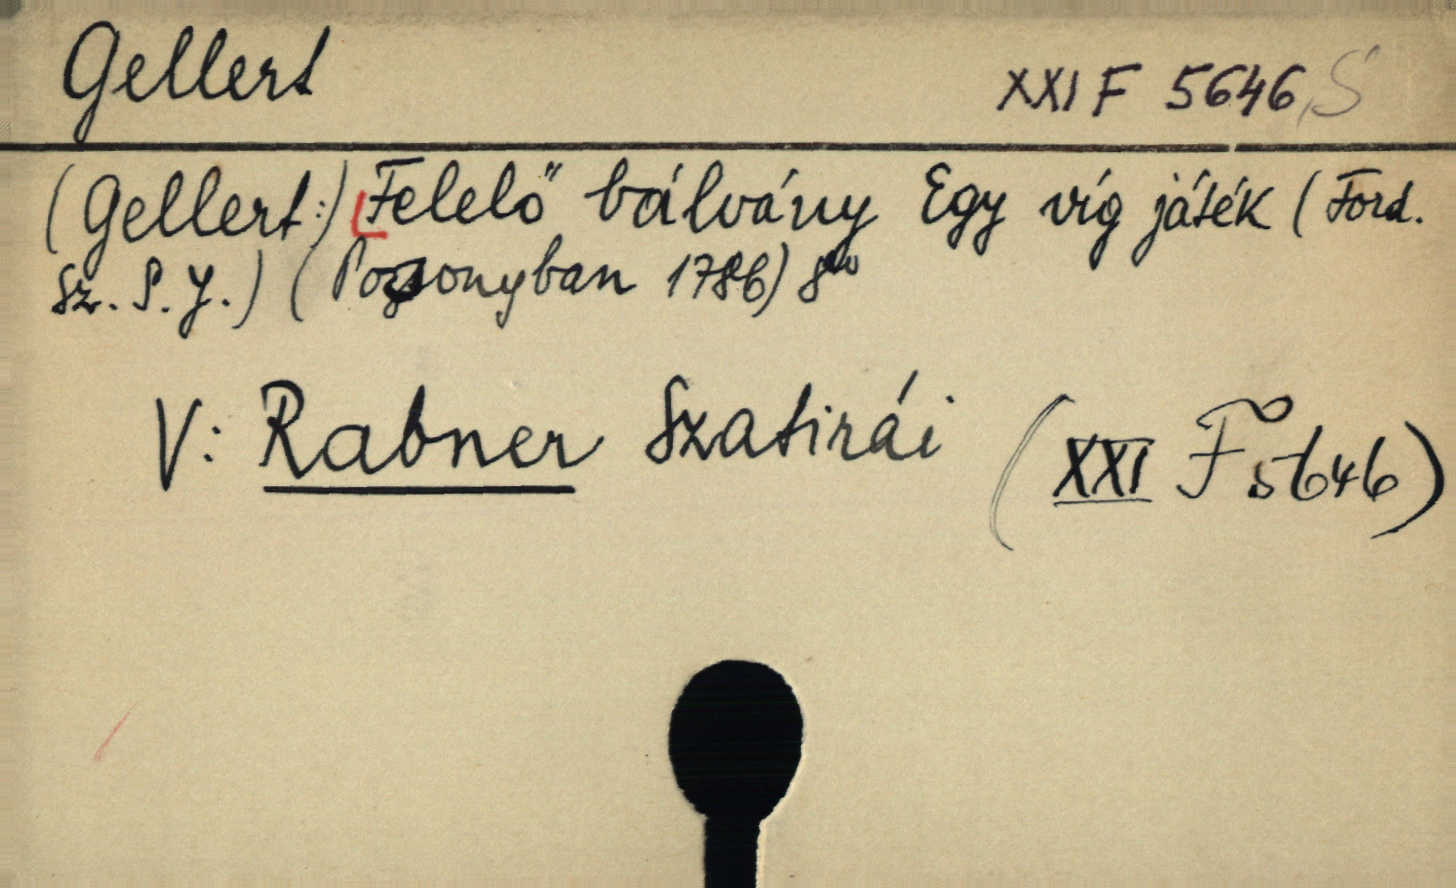 Gellert
XXI F 5646 S
(Gellert:) Felelő bálvány Egy víg játék (Ford.
Sz. P. Y.) (Pozsonyban 1786) 8vo
V: Rabner Szatirái (XXI F 5646)